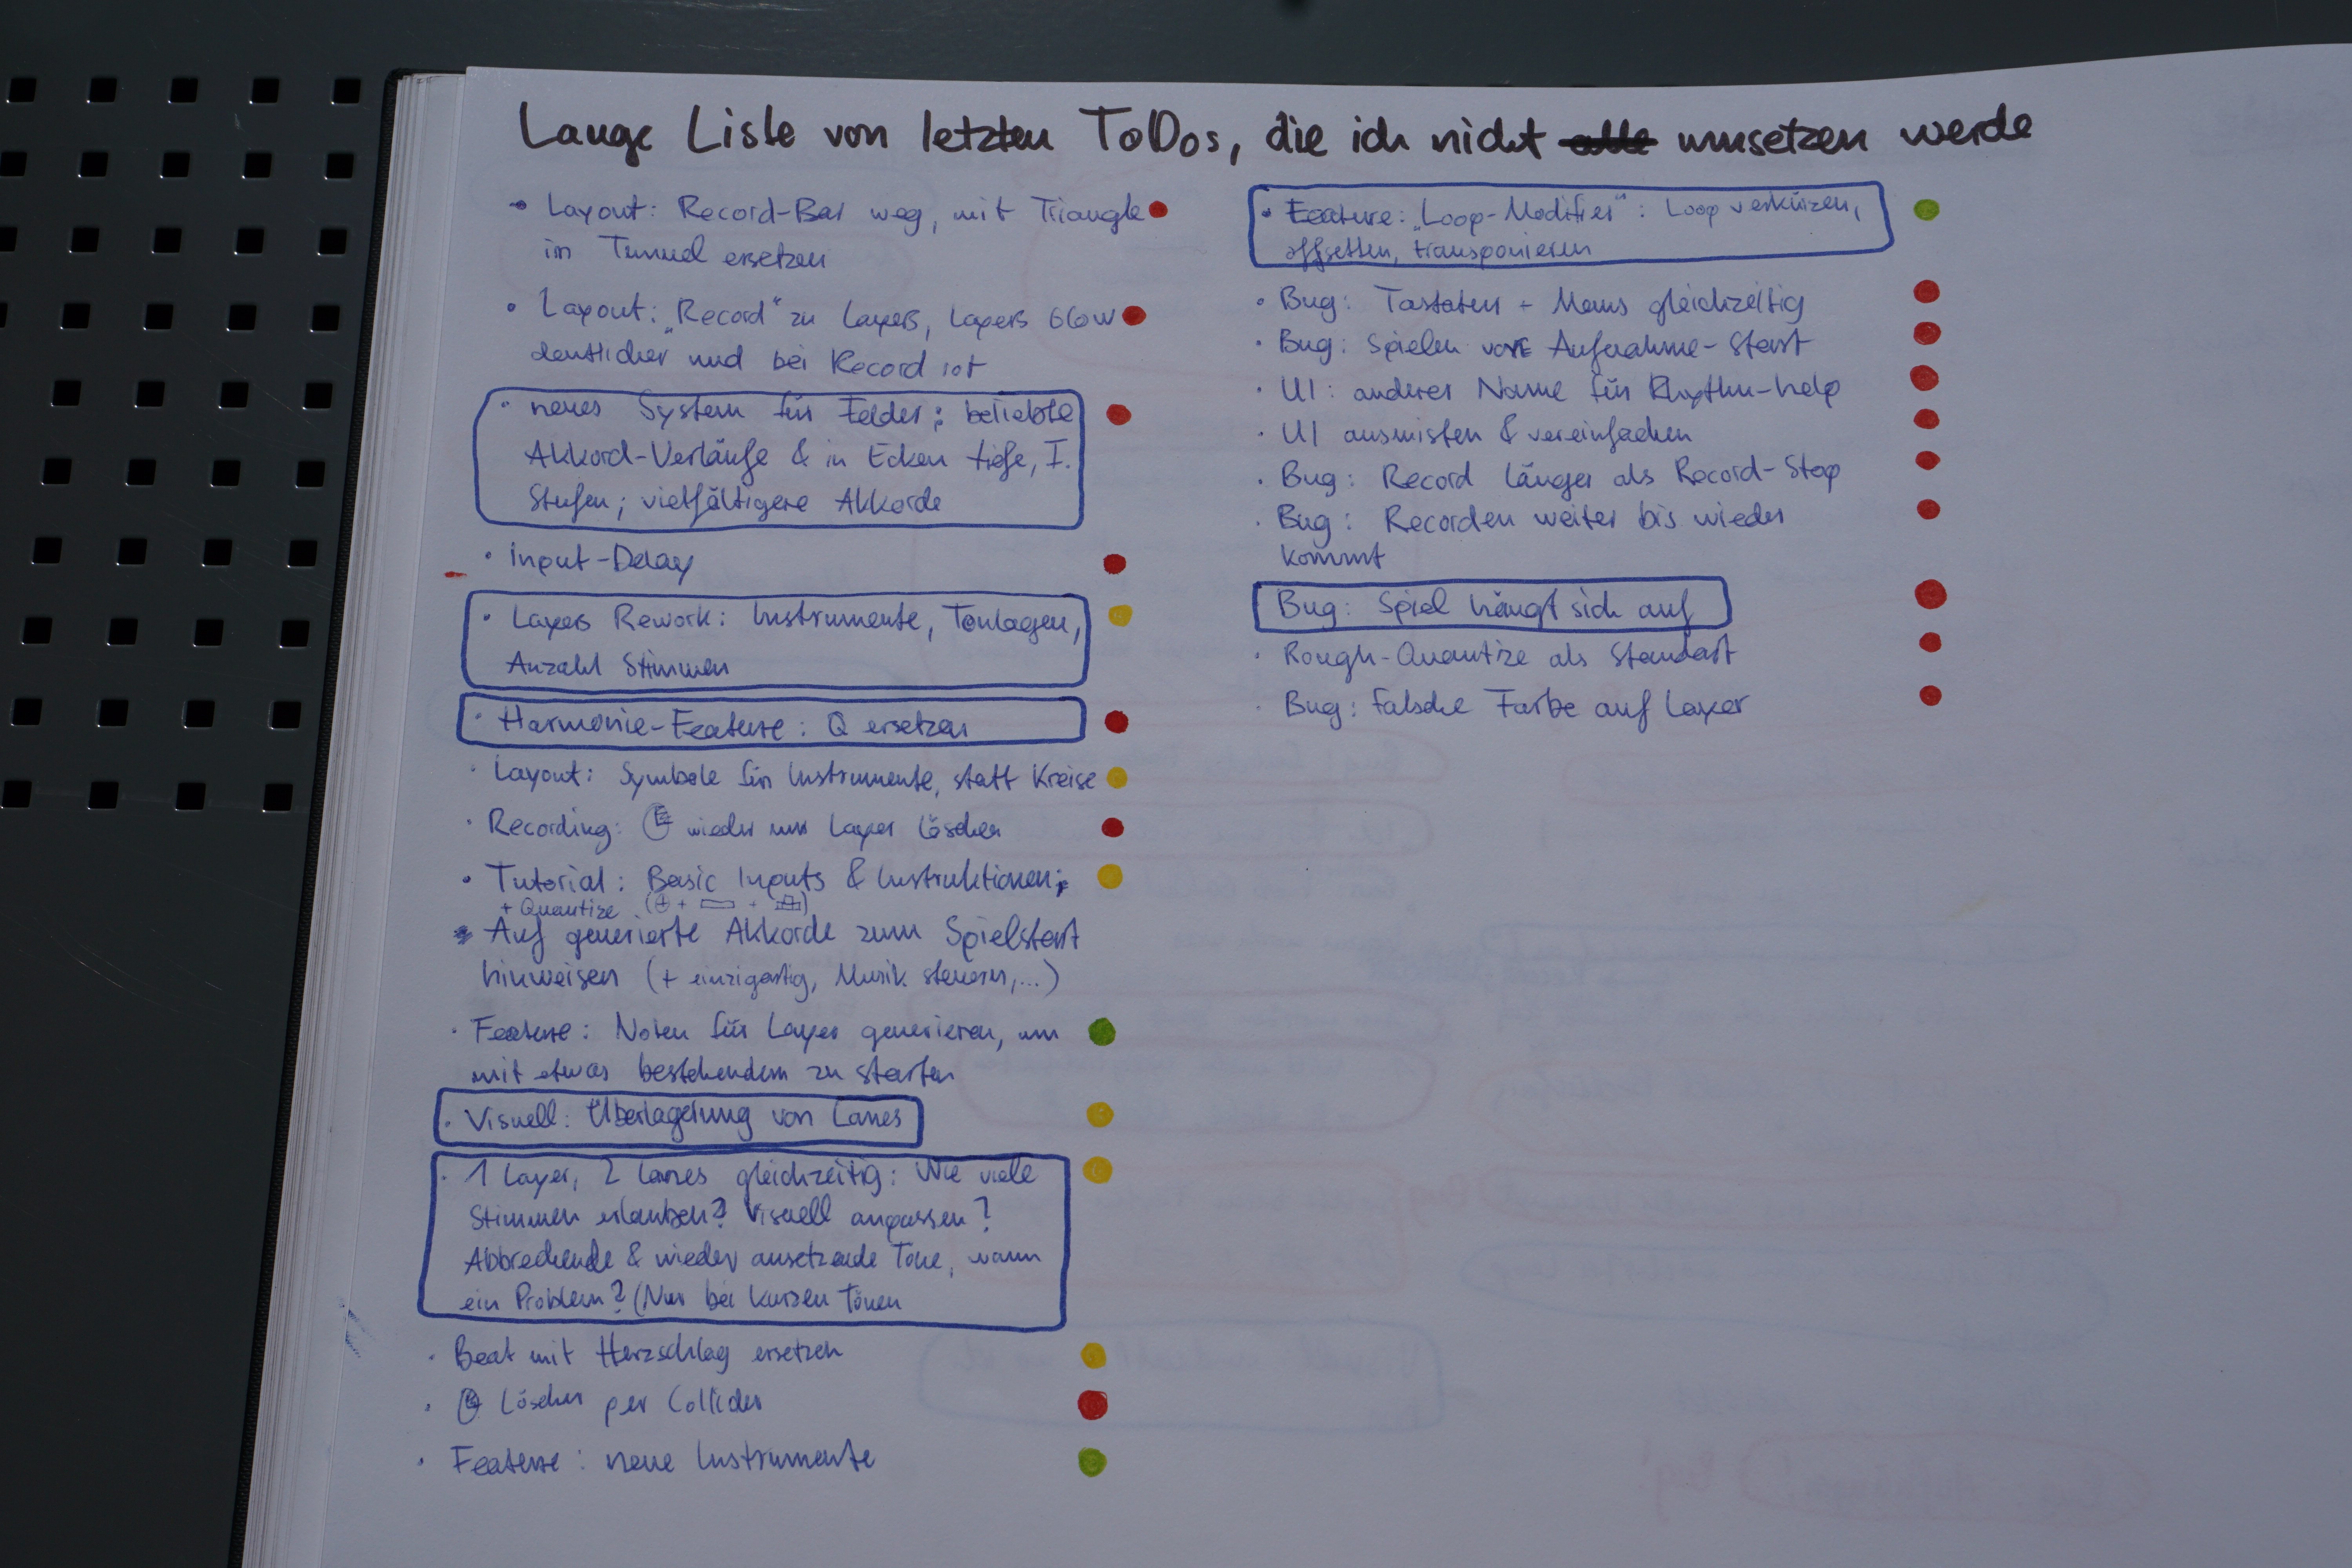 Lange Liste von letzten ToDos, die ich nicht umsetzen werde
• Layout: Record-Bar weg, mit Triangle
in Tunnel ersetzen
• Layout: „Record" zu Layers, Layers Glow
deutlicher und bei Record rot
• neues System für Felder: beliebte
Akkord-Verläufe & in Ecken tiefe, I.
Stufen; vielfältigere Akkorde
• Input-Delay
• Layer Rework: Instrumente, Tonlagen,
Anzahl Stimmen
• Harmonie-Feature: Q ersetzen
• Layout: Symbole für Instrumente, statt Kreise
• Recording: wieder um Layer löschen
• Tutorial: Basic Inputs & Instruktionen;
+ Quantize
• Auf generierte Akkorde zum Spielstart
hinweisen (+ einzigartig, Musik steuern,...)
• Feature: Noten für Layer generieren, um
mit etwas bestehendem zu starten
• Visuell: Überlagerung von Lanes
• 1 Layer, 2 Lanes gleichzeitig: Wie viele
Stimmen erlauben? Visuell anpassen?
Abbrechende & wieder ansetzende Töne, wann
ein Problem? (Nur bei kurzen Tönen
• Beat mit Herzschlag ersetzen
• Löschen per Collider
• Feature: neue Instrumente
• Feature: „Loop-Modifier": Loop verkürzen,
offsetten, transponieren
• Bug: Tastatur + Maus gleichzeitig
• Bug: Spielen vor Aufnahme-Start
• UI: anderer Name für Rhythm-help
• UI ausmisten & vereinfachen
• Bug: Record länger als Record-Stop
• Bug: Recorden weiter bis wieder
kommt
Bug: Spiel hängt sich auf
• Rough-Quantize als Standart
• Bug: falsche Farbe auf Layer